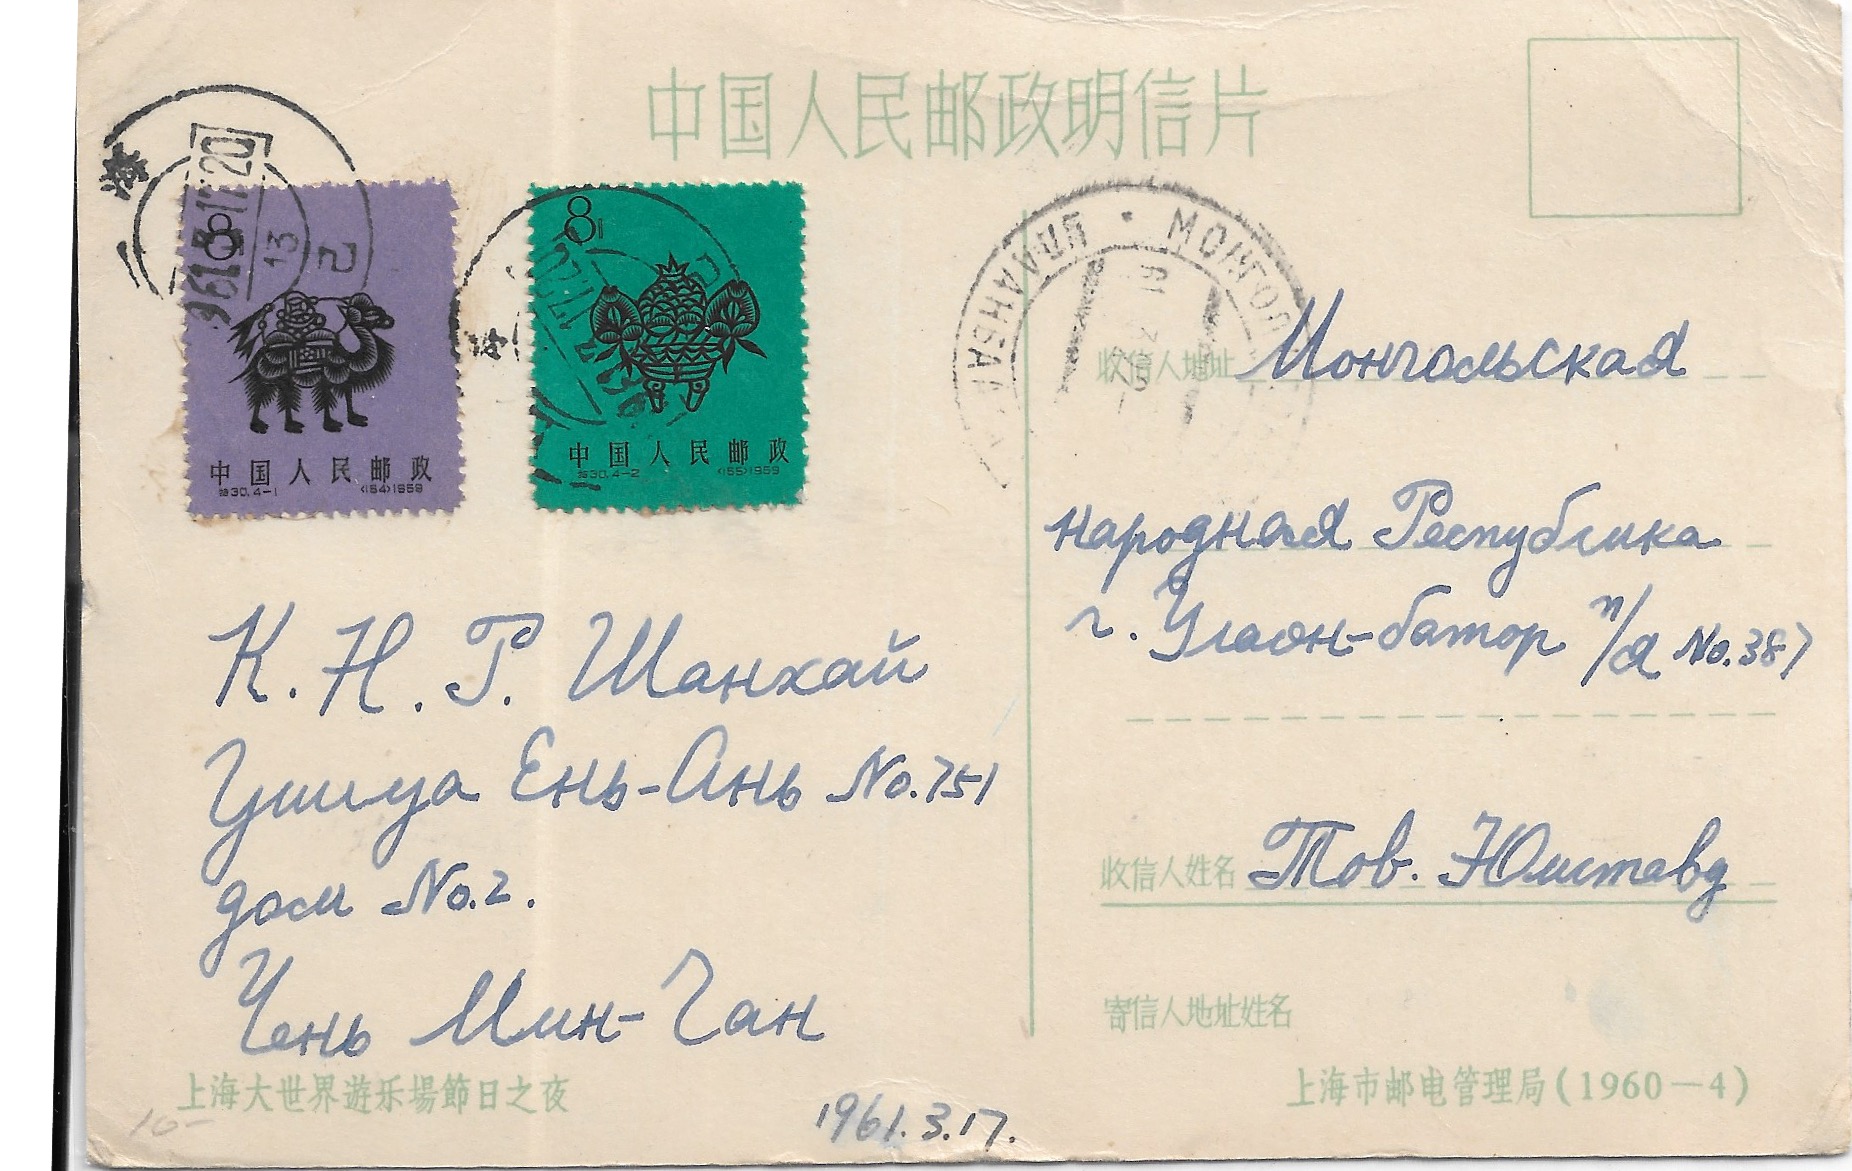 中国人民邮政明信片
8
中国人民邮政
特30.4-1 (164)1959
8
中国人民邮政
特30.4-2 (165)1959
海
1961.3.17.20
13
УЛААНБААТАР • МОНГОЛ
61
收信人地址 Монгольская
народная Республика
г. Улаан-батор п/я No.387
收信人姓名 Тов.
寄信人地址姓名
上海市邮电管理局(1960—4)
К.Н.Р. Шанхай
Улица Ень-Ань No.751
дом No.2.
Чень Мин-Чан
上海大世界遊乐場節日之夜
1961.3.17.
10-